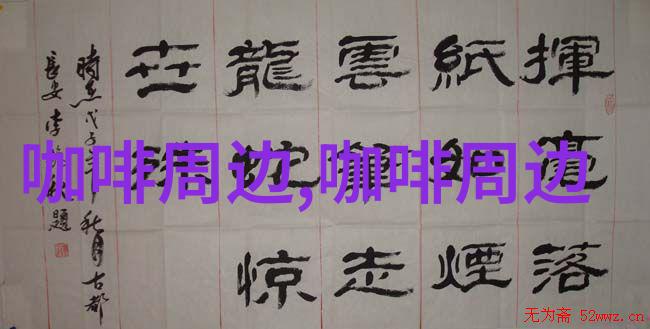 揮毫落
紙煙
雲筆走
龍蛇惊
世
時在戊子年秋月古都
長安李題
咖啡周边,咖啡周边
无为斋 52wwz.cn